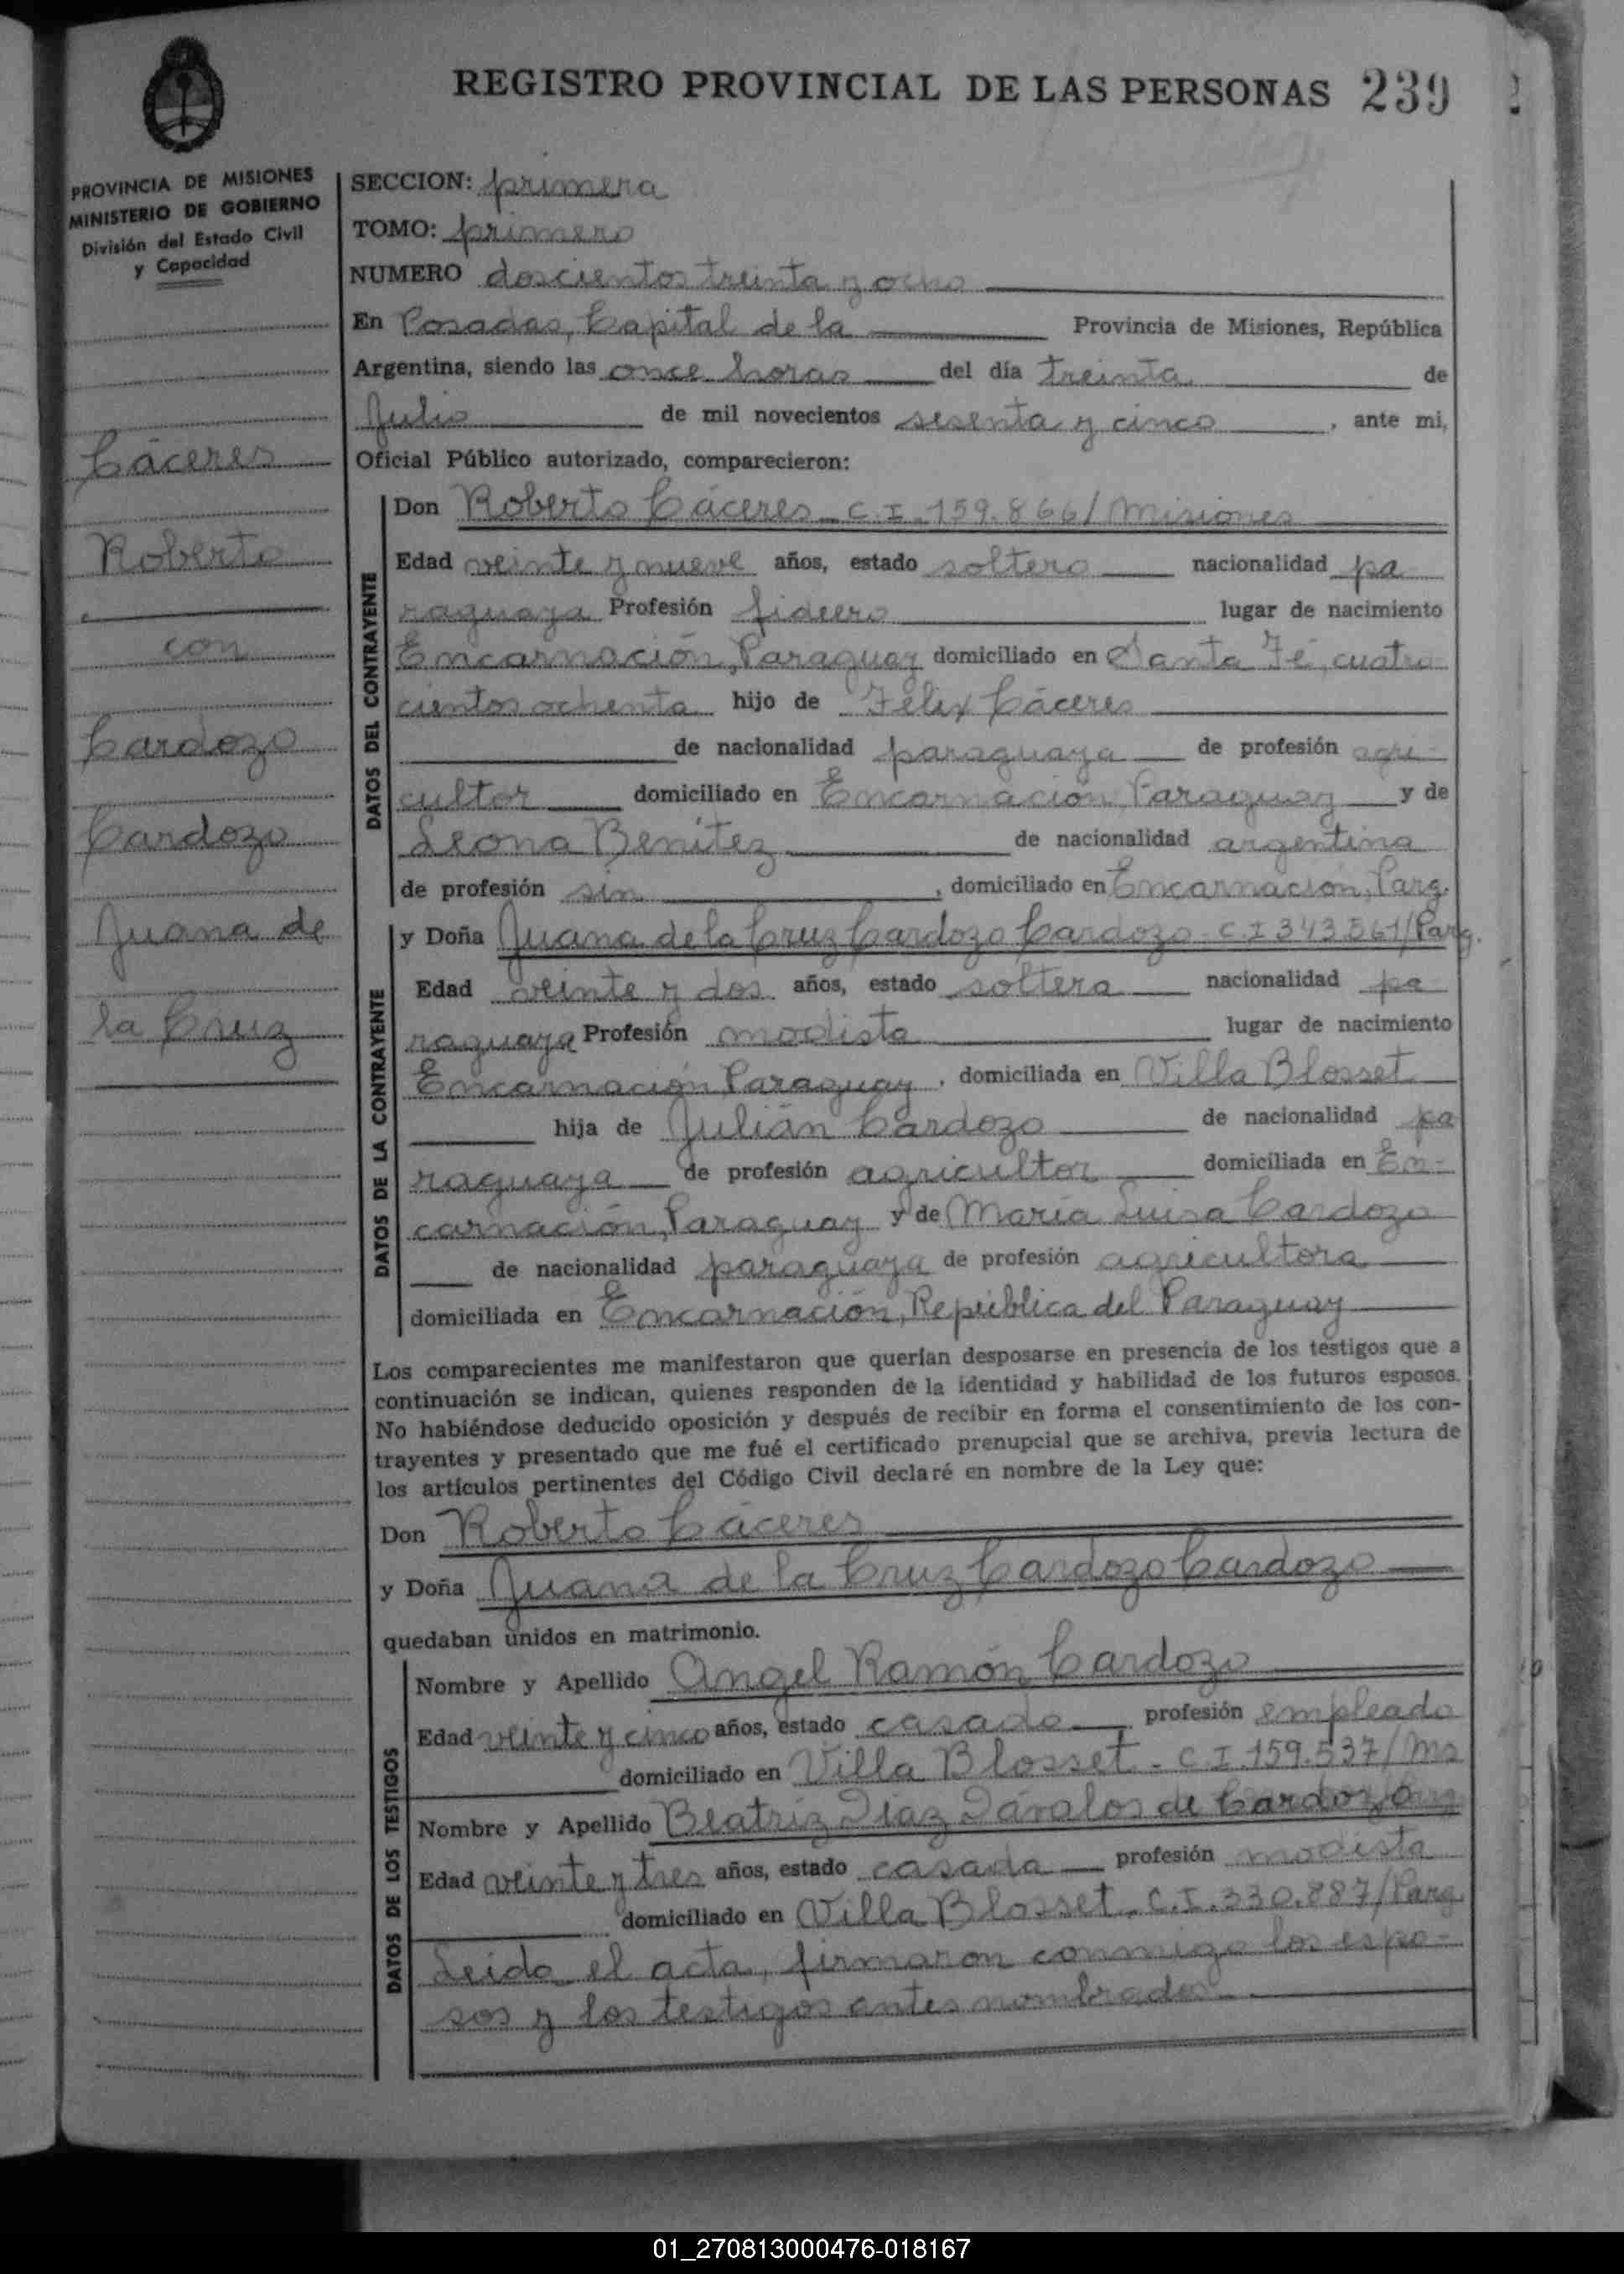 REGISTRO PROVINCIAL DE LAS PERSONAS 239
PROVINCIA DE MISIONES
MINISTERIO DE GOBIERNO
División del Estado Civil
y Capacidad
Cáceres
Roberto
con
Cardozo
Cardozo
Juana de
la Cruz
SECCION: primera
TOMO: primero
NUMERO doscientos treinta y ocho
En Posadas, Capital de la Provincia de Misiones, República
Argentina, siendo las once horas del día treinta de
Julio de mil novecientos sesenta y cinco, ante mi,
Oficial Público autorizado, comparecieron:
DATOS DEL CONTRAYENTE
Don Roberto Cáceres - C.I. 159.866/Misiones
Edad veinte y nueve años, estado soltero nacionalidad pa
raguaya Profesión fideero lugar de nacimiento
Encarnación, Paraguay domiciliado en Santa Fé, cuatro
cientos ochenta hijo de Félix Cáceres
de nacionalidad paraguaya de profesión agri-
cultor domiciliado en Encarnación, Paraguay y de
Leona Benítez de nacionalidad argentina
de profesión sin, domiciliado en Encarnación, Parg.
DATOS DE LA CONTRAYENTE
y Doña Juana de la Cruz Cardozo Cardozo - C.I 343.561/Parg.
Edad veinte y dos años, estado soltera nacionalidad pa
raguaya Profesión modista lugar de nacimiento
Encarnación, Paraguay, domiciliada en Villa Blosset
hija de Julián Cardozo de nacionalidad pa
raguaya de profesión agricultor domiciliada en En-
carnación, Paraguay y de María Luisa Cardozo
de nacionalidad paraguaya de profesión agricultora
domiciliada en Encarnación, República del Paraguay
Los comparecientes me manifestaron que querían desposarse en presencia de los testigos que a
continuación se indican, quienes responden de la identidad y habilidad de los futuros esposos.
No habiéndose deducido oposición y después de recibir en forma el consentimiento de los con-
trayentes y presentado que me fué el certificado prenupcial que se archiva, previa lectura de
los artículos pertinentes del Código Civil declaré en nombre de la Ley que:
Don Roberto Cáceres
y Doña Juana de la Cruz Cardozo Cardozo
quedaban unidos en matrimonio.
DATOS DE LOS TESTIGOS
Nombre y Apellido Angel Ramón Cardozo
Edad veinte y cinco años, estado casado profesión empleado
domiciliado en Villa Blosset - C.I. 159.537/Ms
Nombre y Apellido Beatriz Díaz Dávalos de Cardozo
Edad veinte y tres años, estado casada profesión modista
domiciliado en Villa Blosset. C.I. 330.887/Parg
Leida el acta, firmaron conmigo los espo-
sos y los testigos antes nombrados
01_270813000476-018167